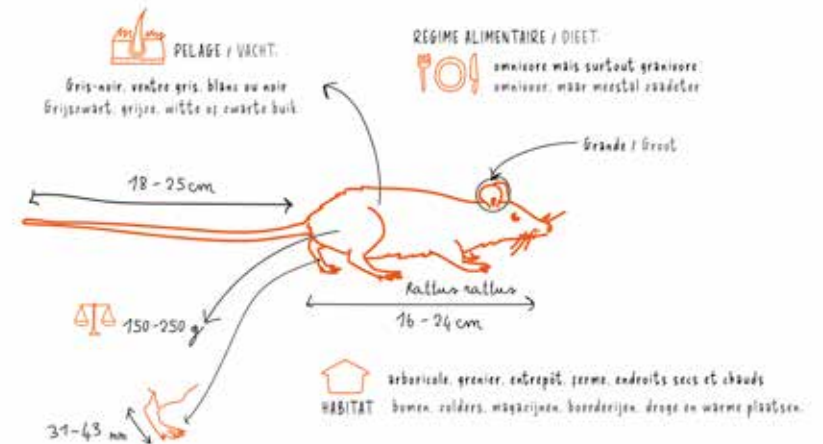 PELAGE / VACHT:
Gris-noir, ventre gris, blanc ou noir
Grijszwart, grijze, witte of zwarte buik
REGIME ALIMENTAIRE / DIEET:
omnivore mais surtout granivore
omnivoor, maar meestal zaadeter
Grande / Groot
18 - 25 cm
Rattus rattus
16 - 24 cm
150-250 g
31-43 mm
HABITAT
arboricole, grenier, entrepôt, ferme, endroits secs et chauds
bomen, zolders, magazijnen, boerderijen, droge en warme plaatsen.